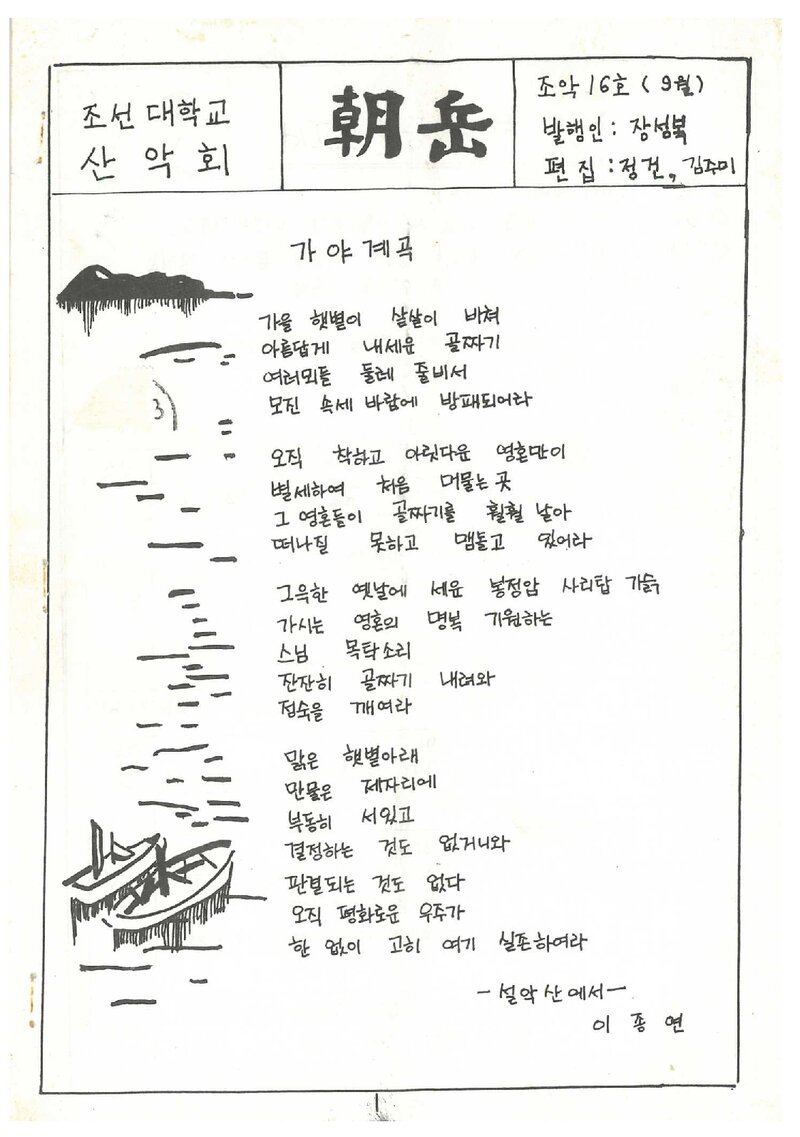 조선 대학교
산 악 회
朝岳
조악 16호 ( 9월 )
발행인 : 장성북
편 집 : 정건, 김주미
가 야 계 곡
가을 햇볕이 살살이 바쳐
아름답게 내세운 골짜기
여러뫼들 둘레 줄비서
모진 속세 바람에 방패되어라
오직 착하고 아릿다운 영혼만이
별세하여 처음 머물는 곳
그 영혼들이 골짜기를 훨훨 날아
떠나질 못하고 맴돌고 있어라
그윽한 옛날에 세운 봉정암 사리탑 기슭
가시는 영혼의 명복 기원하는
스님 목탁소리
잔잔히 골짜기 내려와
정숙을 깨여라
맑은 햇볕아래
만물은 제자리에
부동히 서있고
결정하는 것도 없거니와
판결되는 것도 없다
오직 평화로운 우주가
한 없이 고히 여기 실존하여라
- 설악산에서 -
이 종 연
3
1